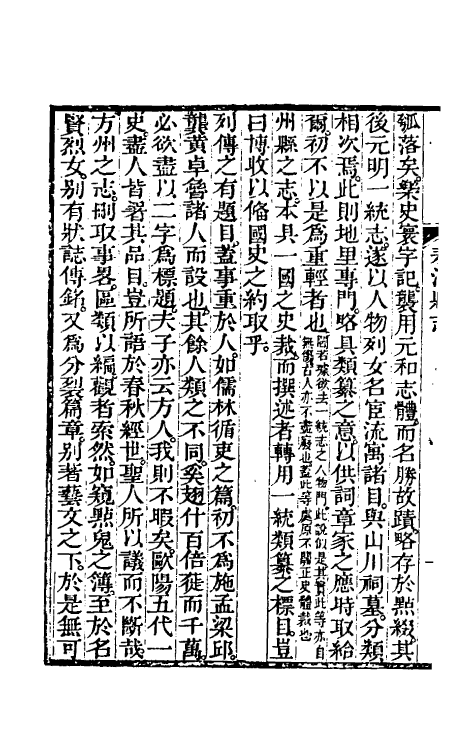 瓠落矣樂史寰宇記襲用元和志體而名勝故蹟略存於點綴其
後元明一統志遂以人物列女名宦流寓諸目與山川祠墓分類
相次焉此則地里專門略具類纂之意以供詞章家之應時取給
爾初不以是爲重輕者也閻若璩欲去一統志之人物門此說似是其實此等亦自
無傷古人亦不盡廢也蓋此等處原不關正史體裁也
州縣之志本具一國之史裁而撰述者轉用一統類纂之標目豈
曰博收以備國史之約取乎
列傳之有題目蓋事重於人如儒林循吏之篇初不爲施孟梁邱
龔黃卓魯諸人而設也其餘人類之不同奚翅什百倍蓰而千萬
必欲盡以二字爲標題夫子亦云方人我則不暇矣歐陽五代一
史盡人皆署其品目豈所語於春秋經世聖人所以議而不斷哉
方州之志刪取事畧區類以編觀者索然如窺點鬼之簿至於名
賢烈女別有狀誌傳銘又爲分裂篇章別著藝文之下於是無可